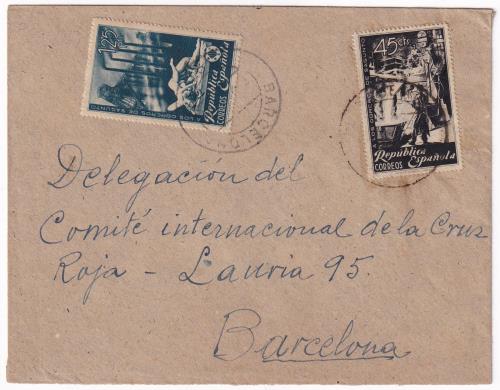 1'25 PTS
A LOS OBREROS DE SAGUNTO
República
Española
CORREOS
BARCELONA
45 cts
A LOS OBREROS DE SAGUNTO
República
Española
CORREOS
Delegación del
Comité internacional de la Cruz
Roja - Lauria 95.
Barcelona